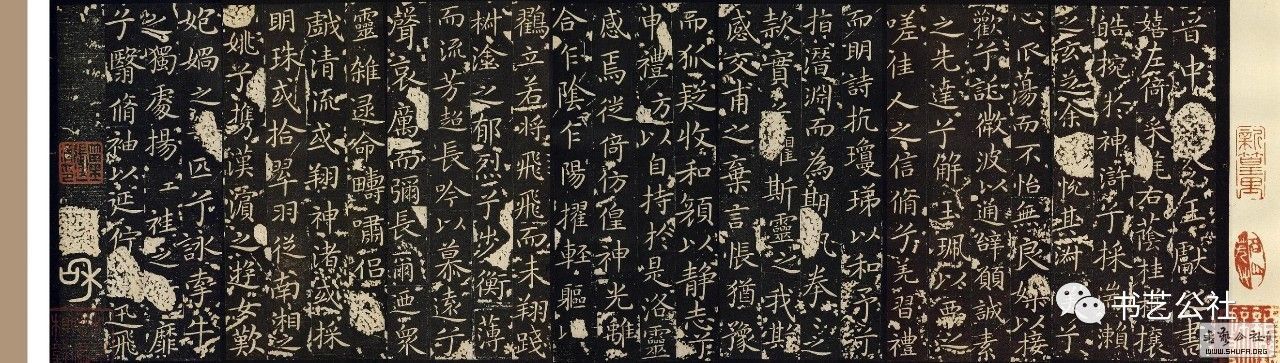 晉中令王獻書
嬉左倚采旄右蔭桂旗攘
皓捥於神滸兮採湍瀨
之玄芝余悅其淑兮
心振蕩而不怡無良媒以接
歡兮託微波以通辭願誠素
之先達兮解玉珮以要之
嗟佳人之信脩兮羌習禮
而明詩抗瓊珶以和予兮
指潛淵而為期執拳之
款實懼斯靈之我欺
感交甫之棄言悵猶豫
而狐疑收和顏以静志兮
申禮防以自持於是洛靈
感焉徙倚仿偟神光離
合乍陰乍陽擢輕軀以
鸛立若將飛飛而未翔踐
椒塗之郁烈兮步衡薄
而流芳超長吟以慕遠兮
聲哀厲而彌長爾迺衆
靈雜遝命疇嘯侶
戲清流或翔神渚或採
明珠或拾翠羽從南湘之
姚兮攜漢濱之遊女歎
匏媧之匹兮詠牽牛
之獨處揚袿之靡
兮翳脩袖以延佇迅飛
书艺公社
书艺公社
WWW.SHUFA.ORG